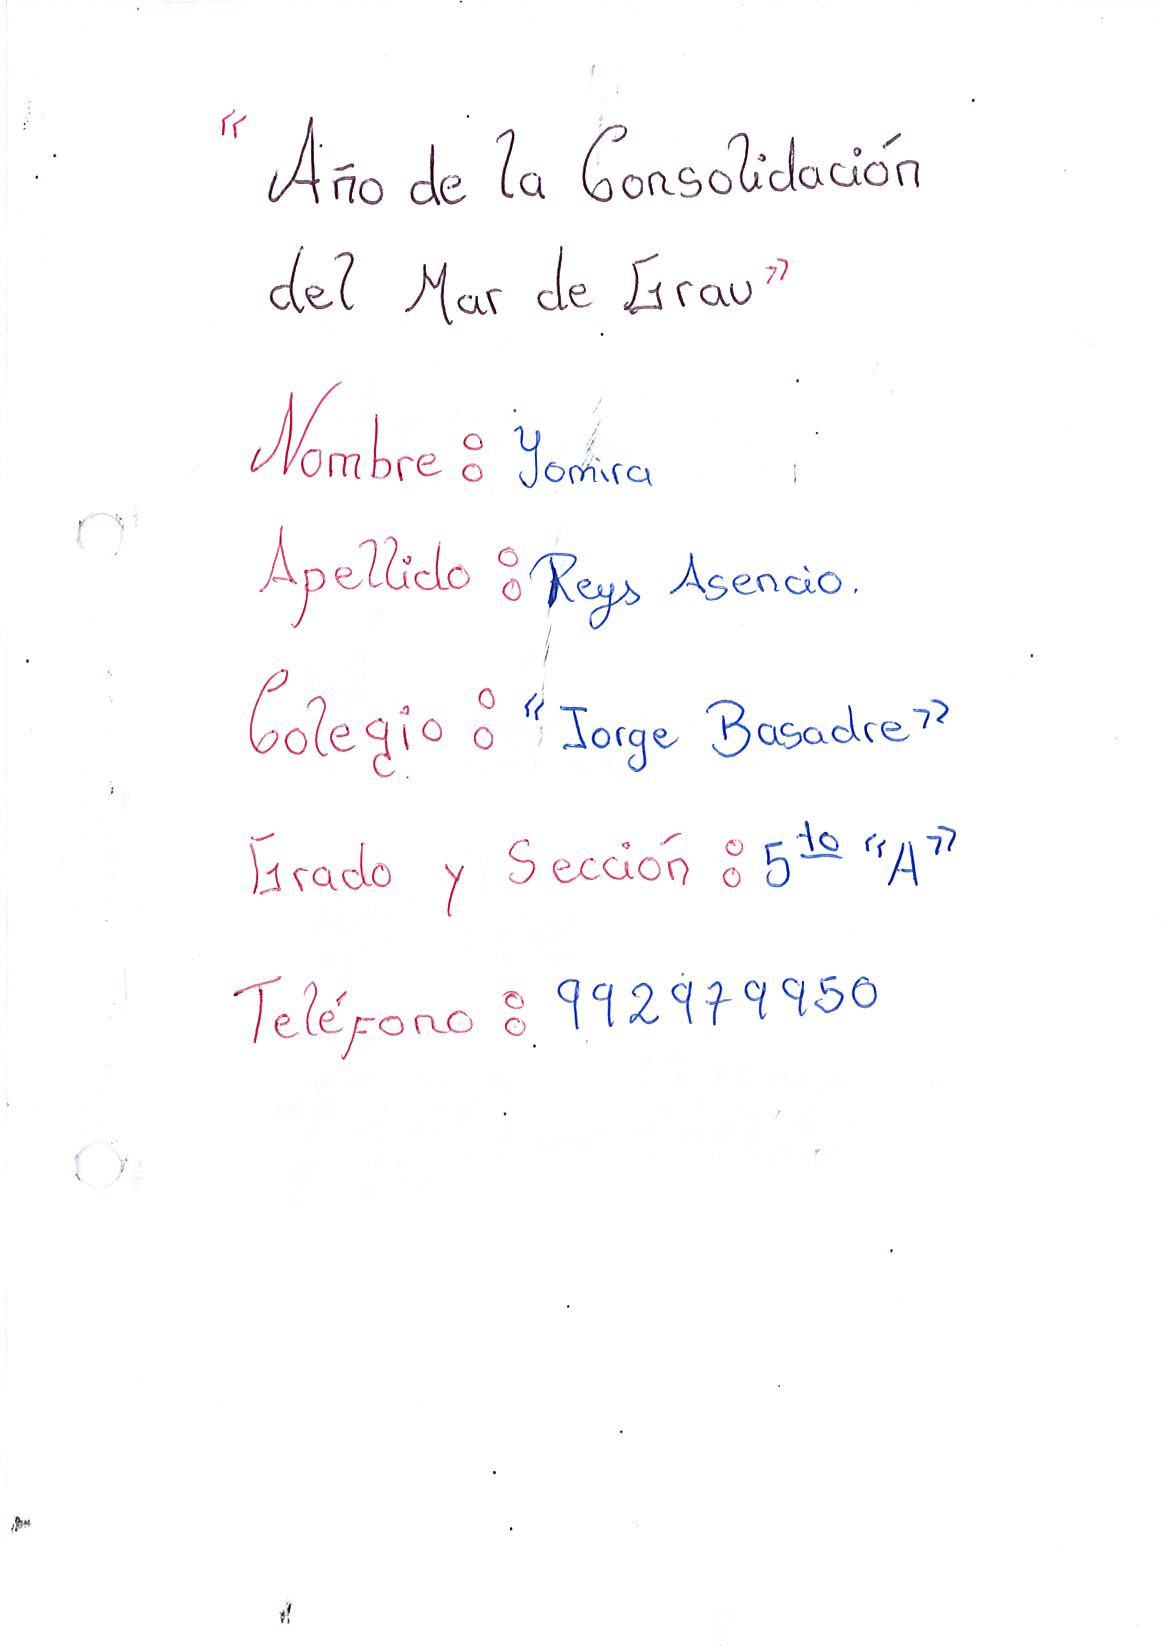 “Año de la Consolidación
del Mar de Grau”
Nombre: Yomira
Apellido: Reys Asencio.
Colegio: “Jorge Basadre”
Grado y Sección: 5to “A”
Teléfono: 992979950